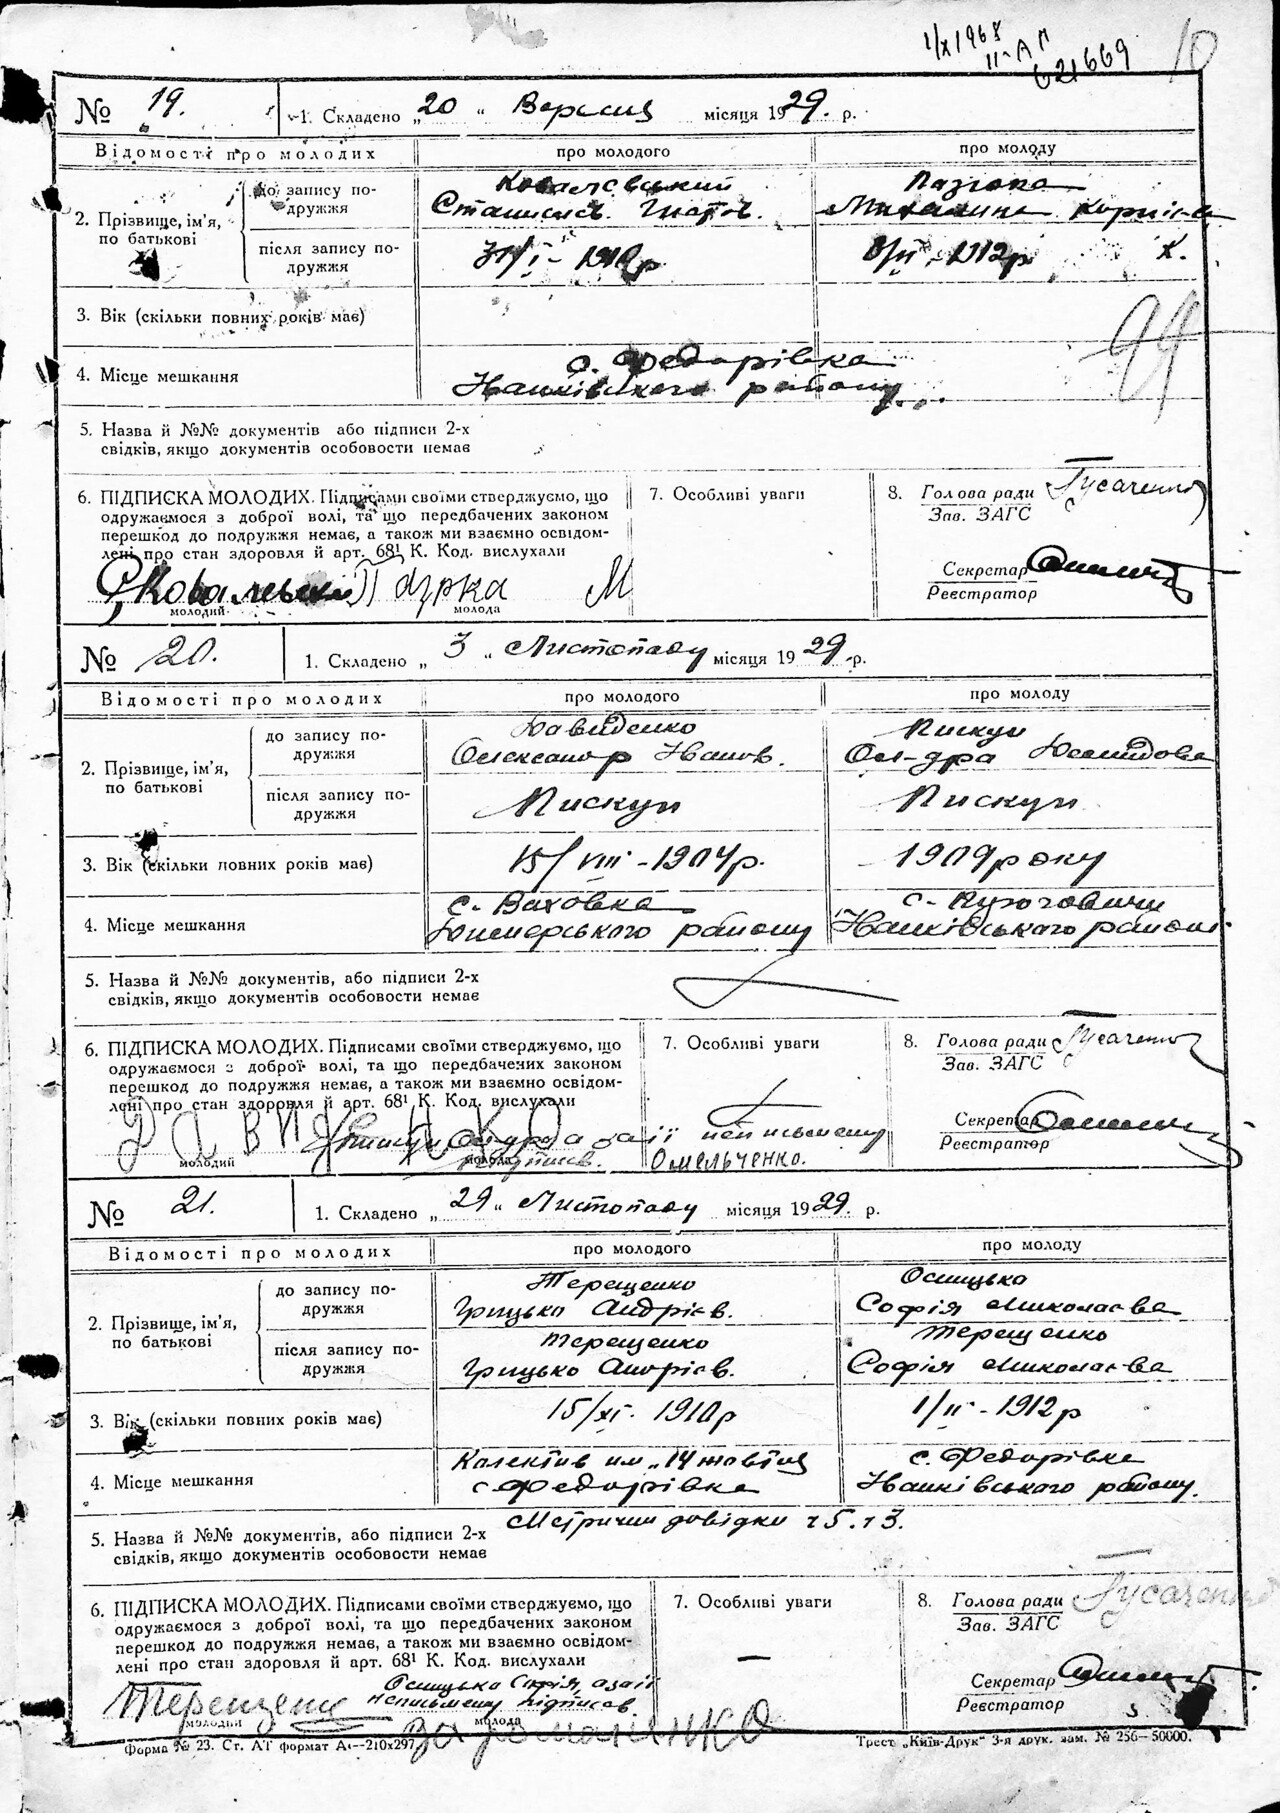 1/X 1968
II-АП
021669
10
№ 19. 1. Складено „20“ Вересня місяця 1929. р.
Відомості про молодих про молодого про молоду
2. Прізвище, ім'я, по батькові
до запису подружжя
Ковалєвський
Станислав. Гнатов.
Михалина Корнієва
після запису подружжя
31/I - 1910р
8/II - 1912р Х.
3. Вік (скільки повних років має)
94
4. Місце мешкання
с. Федорівка
Іванківського району
5. Назва й №№ документів або підписи 2-х
свідків, якщо документів особовости немає
6. ПІДПИСКА МОЛОДИХ. Підписами своїми стверджуємо, що
одружаємося з доброї волі, та що передбачених законом
перешкод до подружжя немає, а також ми взаємно освідом-
лені про стан здоровля й арт. 68¹ К. Код. вислухали
Ковалевский М
молодий молода
7. Особливі уваги
8. Голова ради Гусаченко
Зав. ЗАГС
Секретар
Реєстратор
№ 20. 1. Складено „3“ Листопаду місяця 1929 р.
Відомості про молодих про молодого про молоду
2. Прізвище, ім'я, по батькові
до запису подружжя
Давиденко
Олександр Іванов.
Пискун
Ол-дра Демидова
після запису подружжя
Пискун
Пискун
3. Вік (скільки повних років має)
15/VIII - 1904р.
1909 року
4. Місце мешкання
с. Ваховка
Димерського району
с.
Іванківського району
5. Назва й №№ документів, або підписи 2-х
свідків, якщо документів особовости немає
6. ПІДПИСКА МОЛОДИХ. Підписами своїми стверджуємо, що
одружаємося з доброї волі, та що передбачених законом
перешкод до подружжя немає, а також ми взаємно освідом-
лені про стан здоровля й арт. 68¹ К. Код. вислухали
за її неписьмену
підписав. Омельченко.
молодий молода
7. Особливі уваги
8. Голова ради Гусаченко
Зав. ЗАГС
Секретар
Реєстратор
№ 21. 1. Складено „29“ Листопаду місяця 1929. р.
Відомості про молодих про молодого про молоду
2. Прізвище, ім'я, по батькові
до запису подружжя
Терещенко
Грицько Андрієв.
Осицька
Софія Миколаєва
після запису подружжя
Терещенко
Грицько Андрієв.
Терещенко
Софія Миколаєва
3. Вік (скільки повних років має)
15/XI - 1910р
1/II - 1912р
4. Місце мешкання
Колектив им „14 жовтня
с Федорівка
с. Федорівка
Іванківського району.
5. Назва й №№ документів, або підписи 2-х
свідків, якщо документів особовости немає
Метрични довідки
6. ПІДПИСКА МОЛОДИХ. Підписами своїми стверджуємо, що
одружаємося з доброї волі, та що передбачених законом
перешкод до подружжя немає, а також ми взаємно освідом-
лені про стан здоровля й арт. 68¹ К. Код. вислухали
Осицька Софія, а за її
неписьмену підписав.
Терещенко
молодий молода
7. Особливі уваги
—
8. Голова ради Гусаченко
Зав. ЗАГС
Секретар
Реєстратор
Форма № 23. Ст. АТ формат А4—210х297
Трест „Київ-Друк“ 3-я друк. зам. № 256—50000.